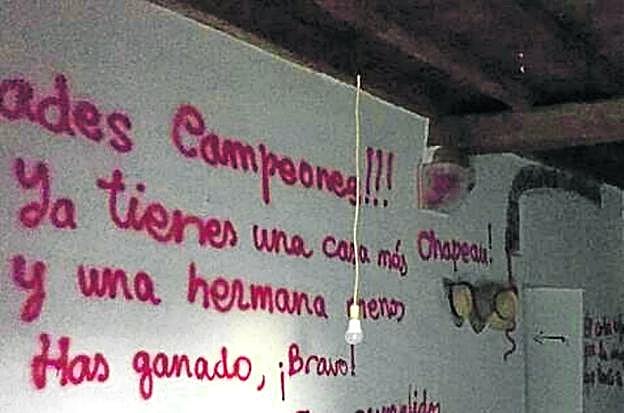 ades Campeones!!!
Ya tienes una casa más Chapeau!
y una hermana menos
Has ganado, ¡Bravo!